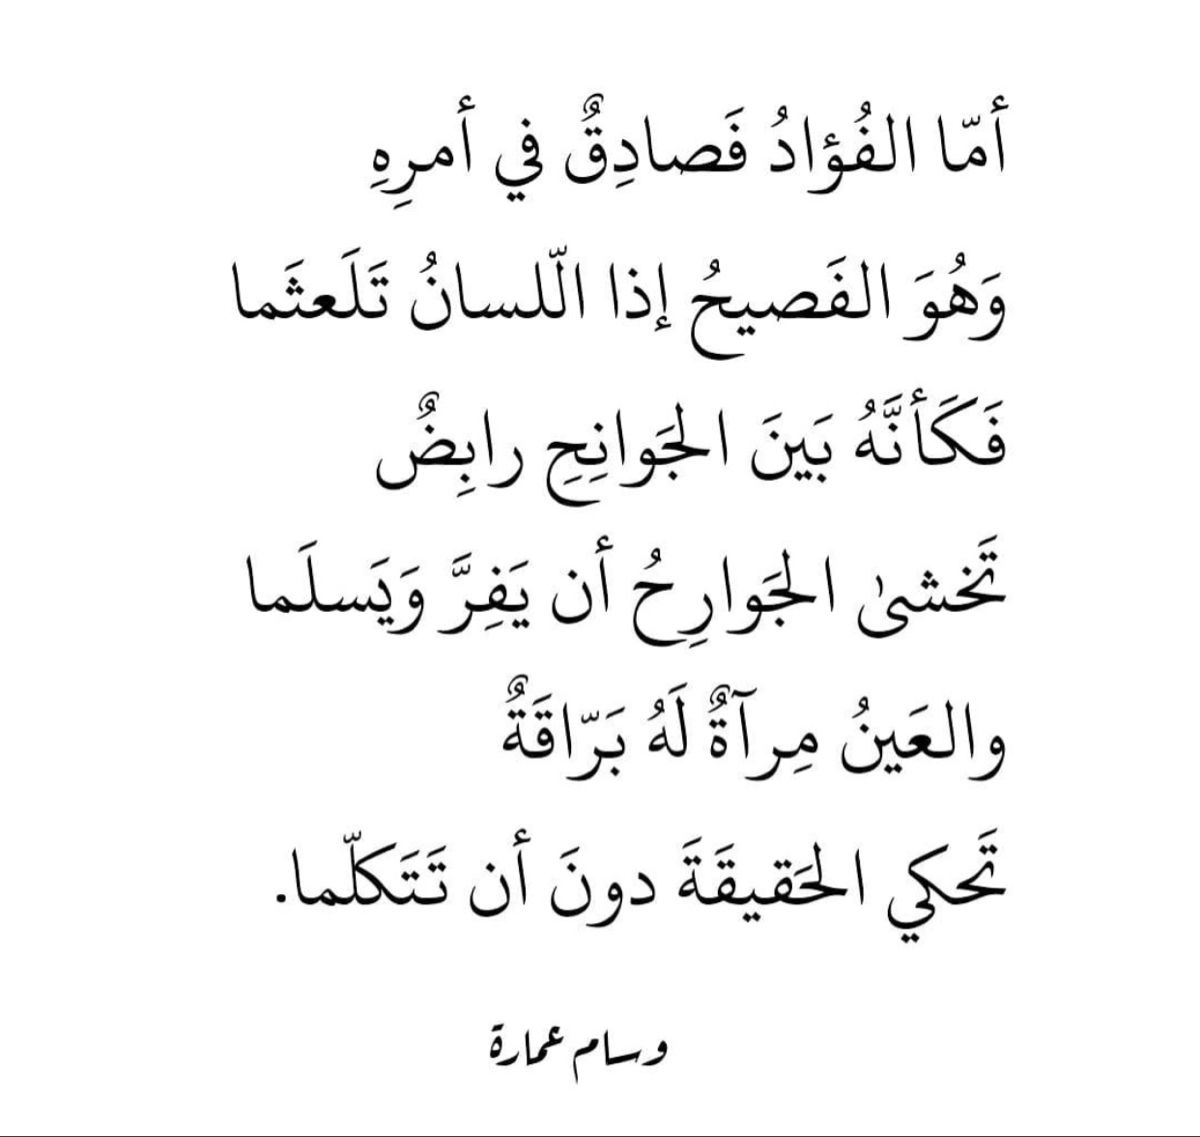 أمّا الفُؤادُ فَصادِقٌ في أمرِهِ
وَهُوَ الفَصيحُ إذا الّلسانُ تَلَعثَما
فَكَأنَّهُ بَينَ الجَوانِحِ رابِضٌ
تَخشىٰ الجَوارِحُ أن يَفِرَّ وَيَسلَما
والعَينُ مِرآةٌ لَهُ بَرّاقَةٌ
تَحكي الحَقيقَةَ دونَ أن تَتَكلّما.
وسام عمارة